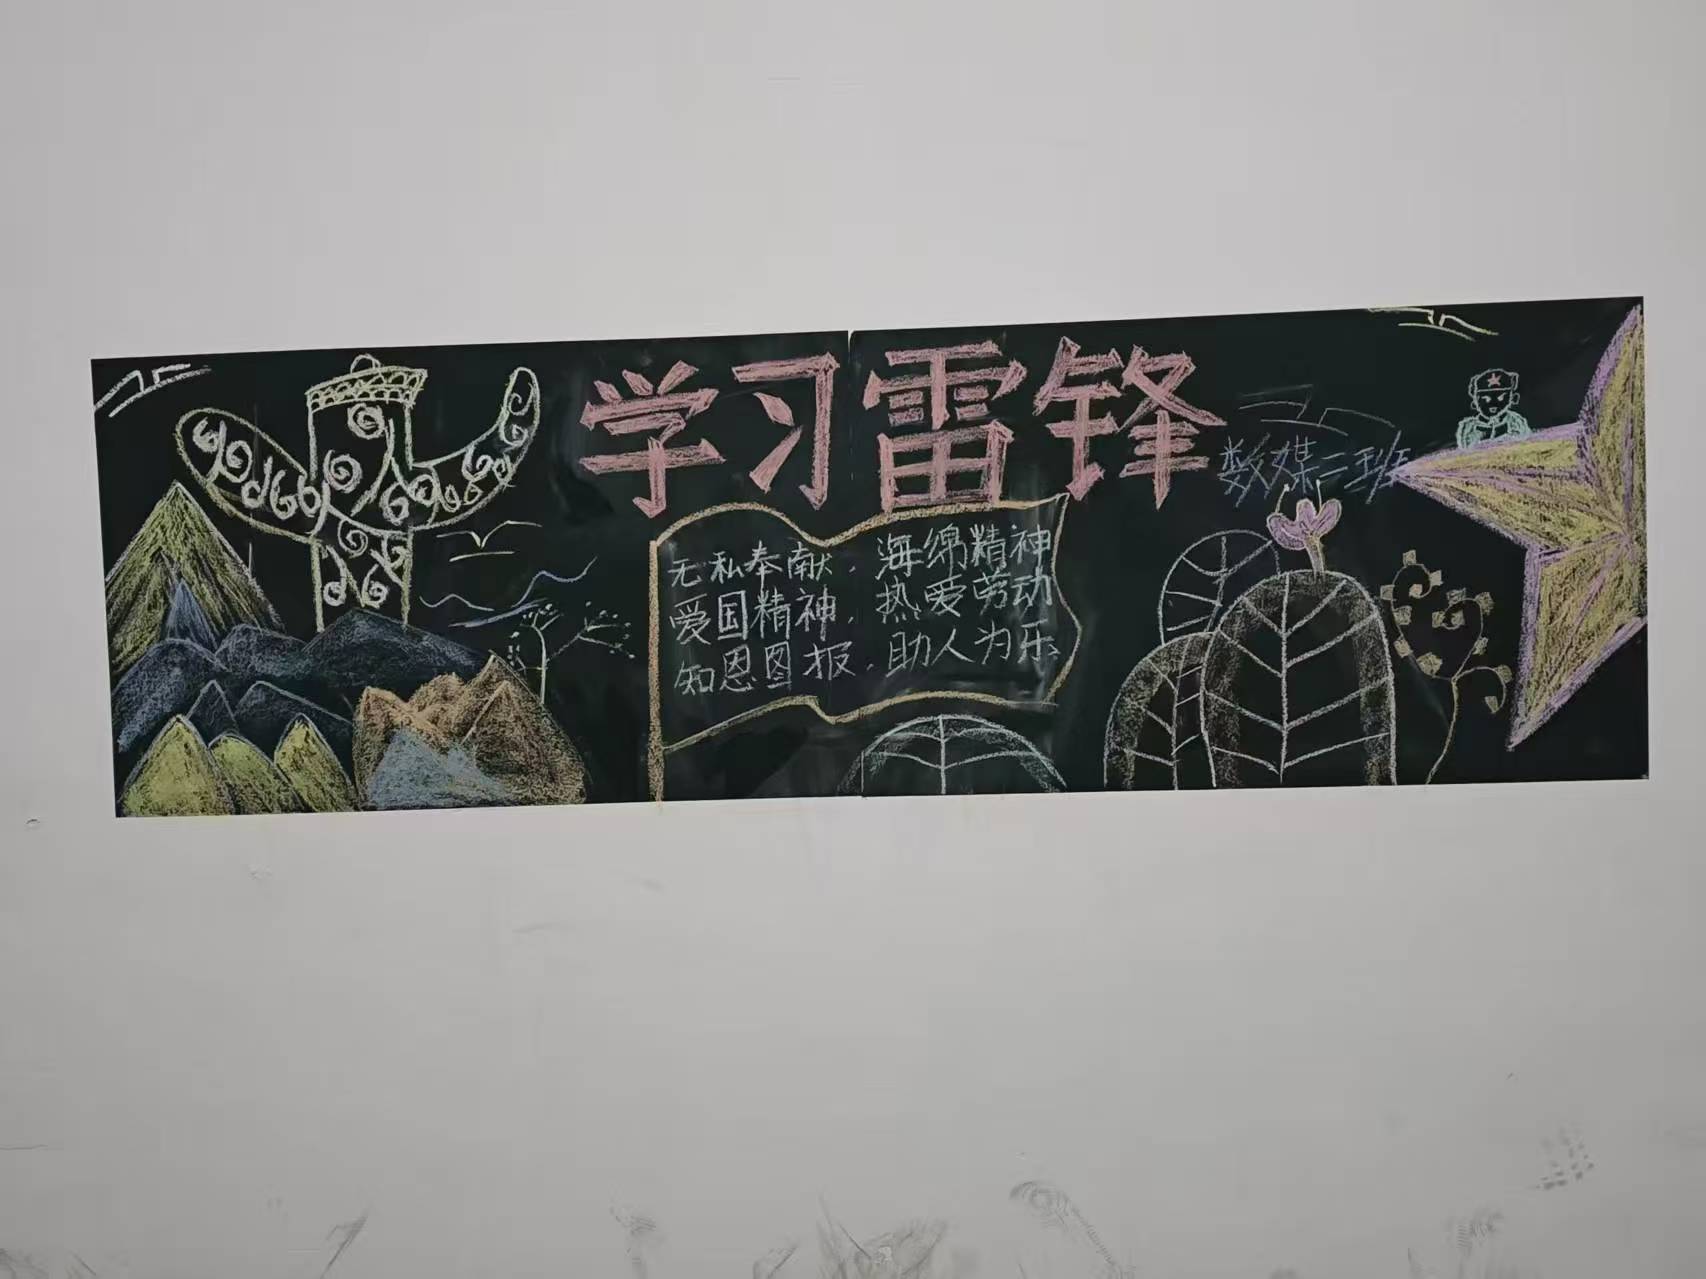 学习雷锋
数媒二班
无私奉献，海绵精神
爱国精神，热爱劳动
知恩图报，助人为乐